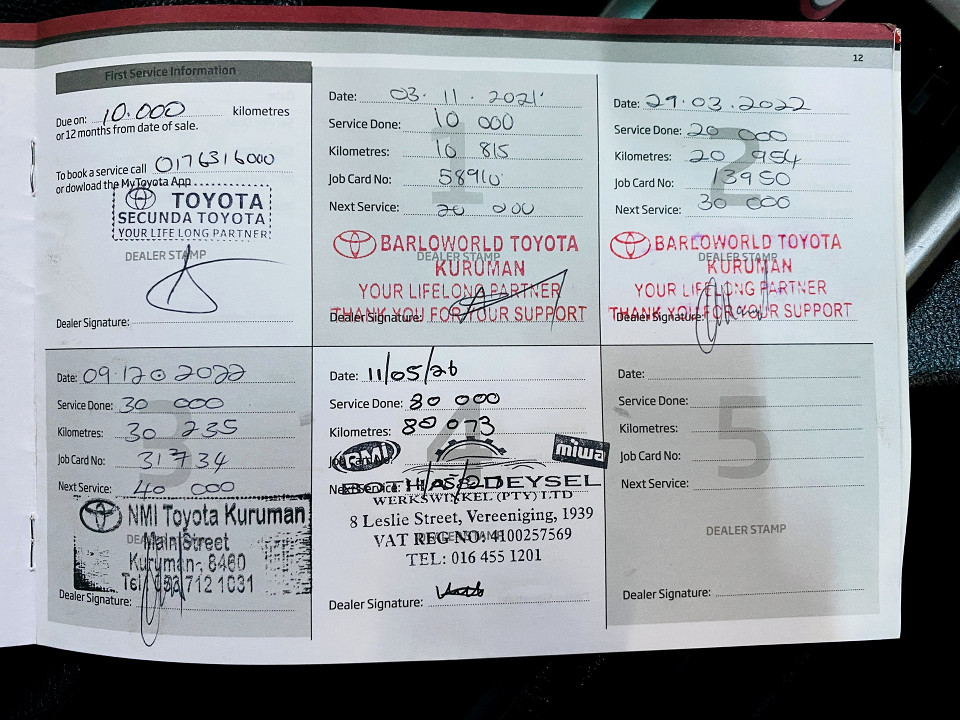 12
First Service Information
Due on: 10.000 kilometres
or 12 months from date of sale.
To book a service call 0176316000
or dowload the MyToyota App
TOYOTA
SECUNDA TOYOTA
YOUR LIFE LONG PARTNER
DEALER STAMP
Dealer Signature:
1
Date: 03.11.2021
Service Done: 10 000
Kilometres: 10 815
Job Card No: 58910
Next Service: 20 000
BARLOWORLD TOYOTA
DEALER STAMP
KURUMAN
YOUR LIFELONG PARTNER
THANK YOU FOR YOUR SUPPORT
Dealer Signature:
2
Date: 29.03.2022
Service Done: 20 000
Kilometres: 20 954
Job Card No: 13950
Next Service: 30 000
BARLOWORLD TOYOTA
DEALER STAMP
KURUMAN
YOUR LIFELONG PARTNER
THANK YOU FOR YOUR SUPPORT
Dealer Signature:
3
Date:
Service Done: 30 000
Kilometres: 30 235
Job Card No: 31734
Next Service: 40 000
NMI Toyota Kuruman
Main Street
Kuruman, 8460
Tel: 053 712 1031
Dealer Signature:
4
Date: 11/05/26
Service Done: 80 000
Kilometres: 80 073
Job Card No:
RMI
miwa
Next Service:
DEYSEL
WERKSWINKEL (PTY) LTD
8 Leslie Street, Vereeniging, 1939
VAT REG NO: 4100257569
TEL: 016 455 1201
Dealer Signature:
5
Date:
Service Done:
Kilometres:
Job Card No:
Next Service:
DEALER STAMP
Dealer Signature: